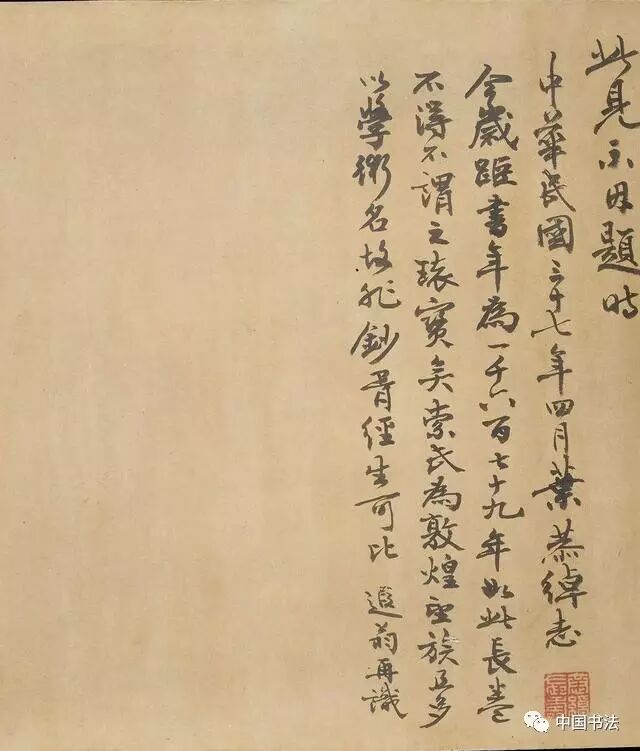 此見示因題時
中華民國三十七年四月葉恭綽志
今歲距書年為一千六百七十九年如此長卷
不得不謂之瓌寶矣索氏為敦煌望族且多
以學術名故非鈔胥經生可比 遐翁再識
中国书法